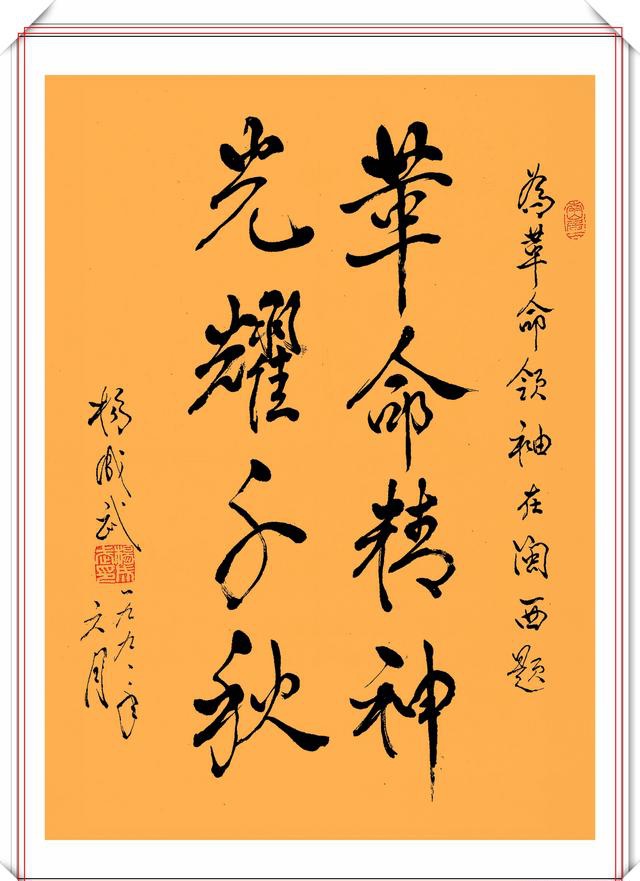 為革命领袖在闽西题
革命精神
光耀千秋
楊成武
一九九 年
六月